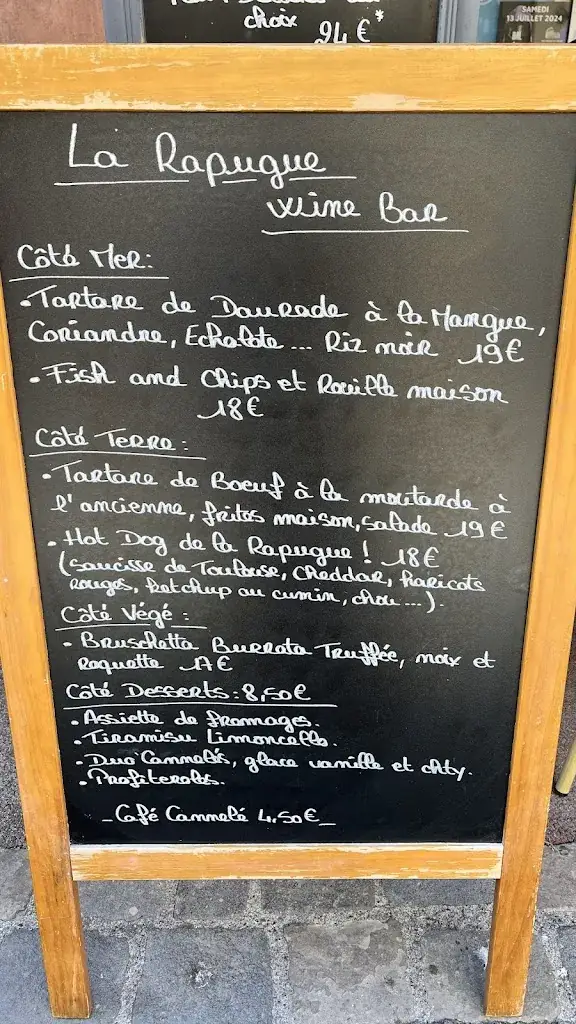 choix
24 €*
SAMEDI
13 JUILLET 2024
La Rapugue
Wine Bar
Côté Mer:
• Tartare de Daurade à la Mangue,
Coriandre, Echalote... Riz noir 19€
• Fish and Chips et Rouille maison
18€
Côté Terre:
• Tartare de Boeuf à la moutarde à
l'ancienne, frites maison, salade 19€
• Hot Dog de la Rapugue! 18€
(saucisse de Toulouse, Cheddar, haricots
rouges, ketchup au cumin, chou...).
Côté Végé:
• Bruschetta Burrata Truffée, noix et
roquette 17€
Côté Desserts: 8,50€
• Assiette de fromages.
• Tiramisu Limoncello.
• Duo Cannelés, glace vanille et chty.
• Profiteroles.
- Café Cannelé 4,50€ -